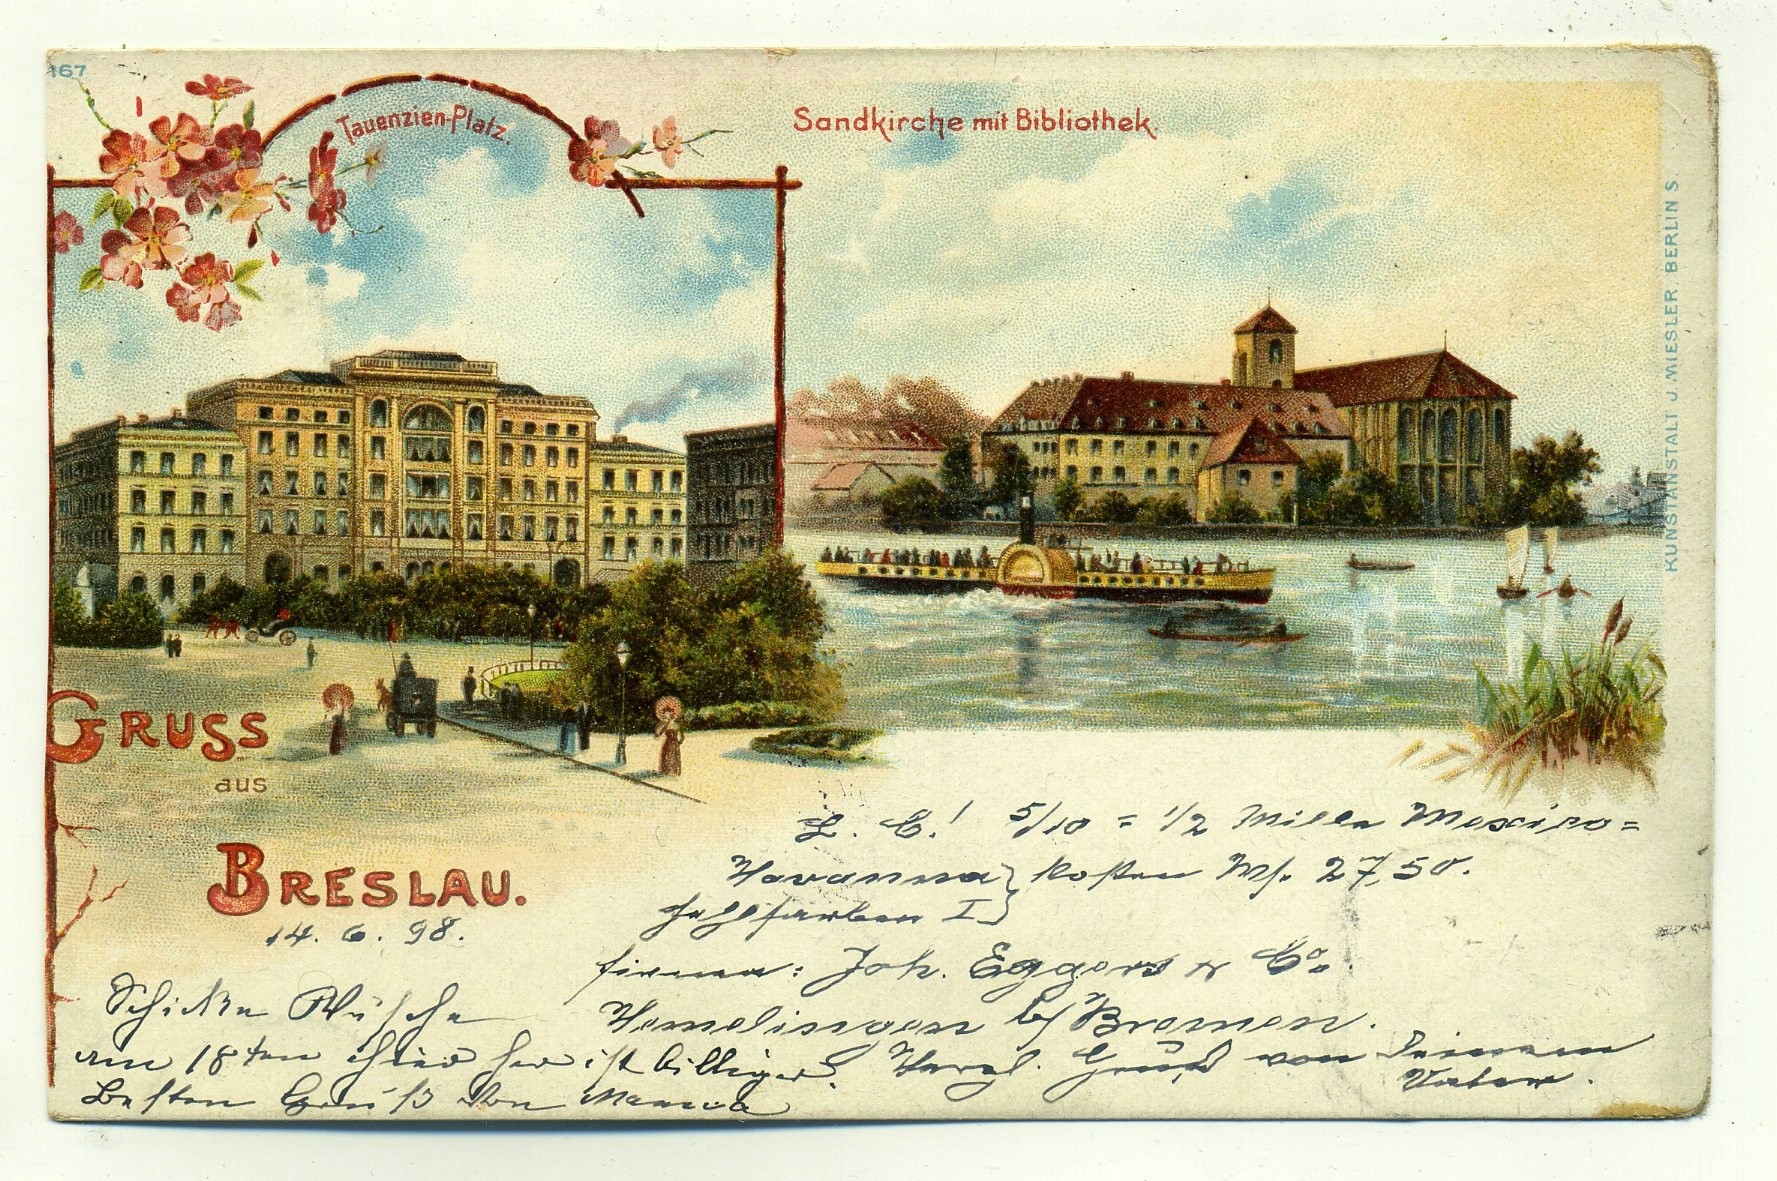 167
Tauenzien-Platz.
Sandkirche mit Bibliothek.
KUNSTANSTALT J. MIESLER BERLIN S.
GRUSS
aus
BRESLAU.
14. 6. 98.
L. C.! 5/10 = 1/2 Mille Mexico=
Havanna } kosten Mk. 27,50.
Fehlfarben I }
Firma: Joh. Eggers & Co.
Hemelingen b/ Bremen.
Herzl. Gruß von Deinem
Vater.
Schicke Wäsche
am 18ten hier her ist billiger.
Besten Gruß von Mama